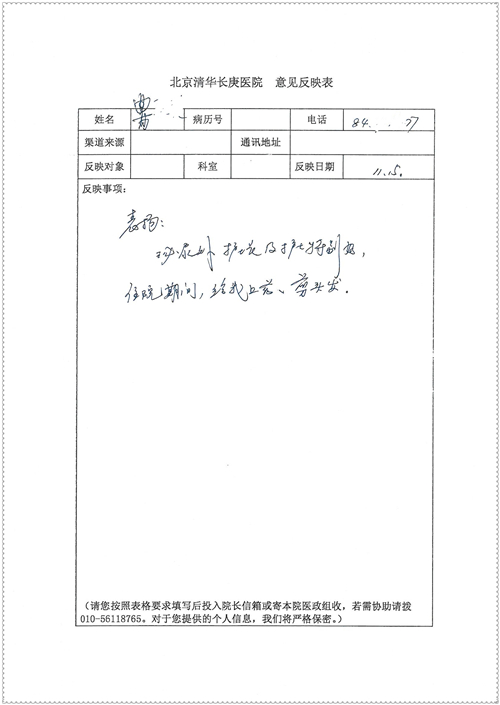 北京清华长庚医院 意见反映表
姓名 曹 病历号 电话 84 77
渠道来源 通讯地址
反映对象 科室 反映日期 11.15.
反映事项:
表扬:
泌尿外护士长及护士特别好,
住院期间,给我上药、剪头发.
(请您按照表格要求填写后投入院长信箱或寄本院医政组收,若需协助请拨
010-56118765。对于您提供的个人信息,我们将严格保密。)